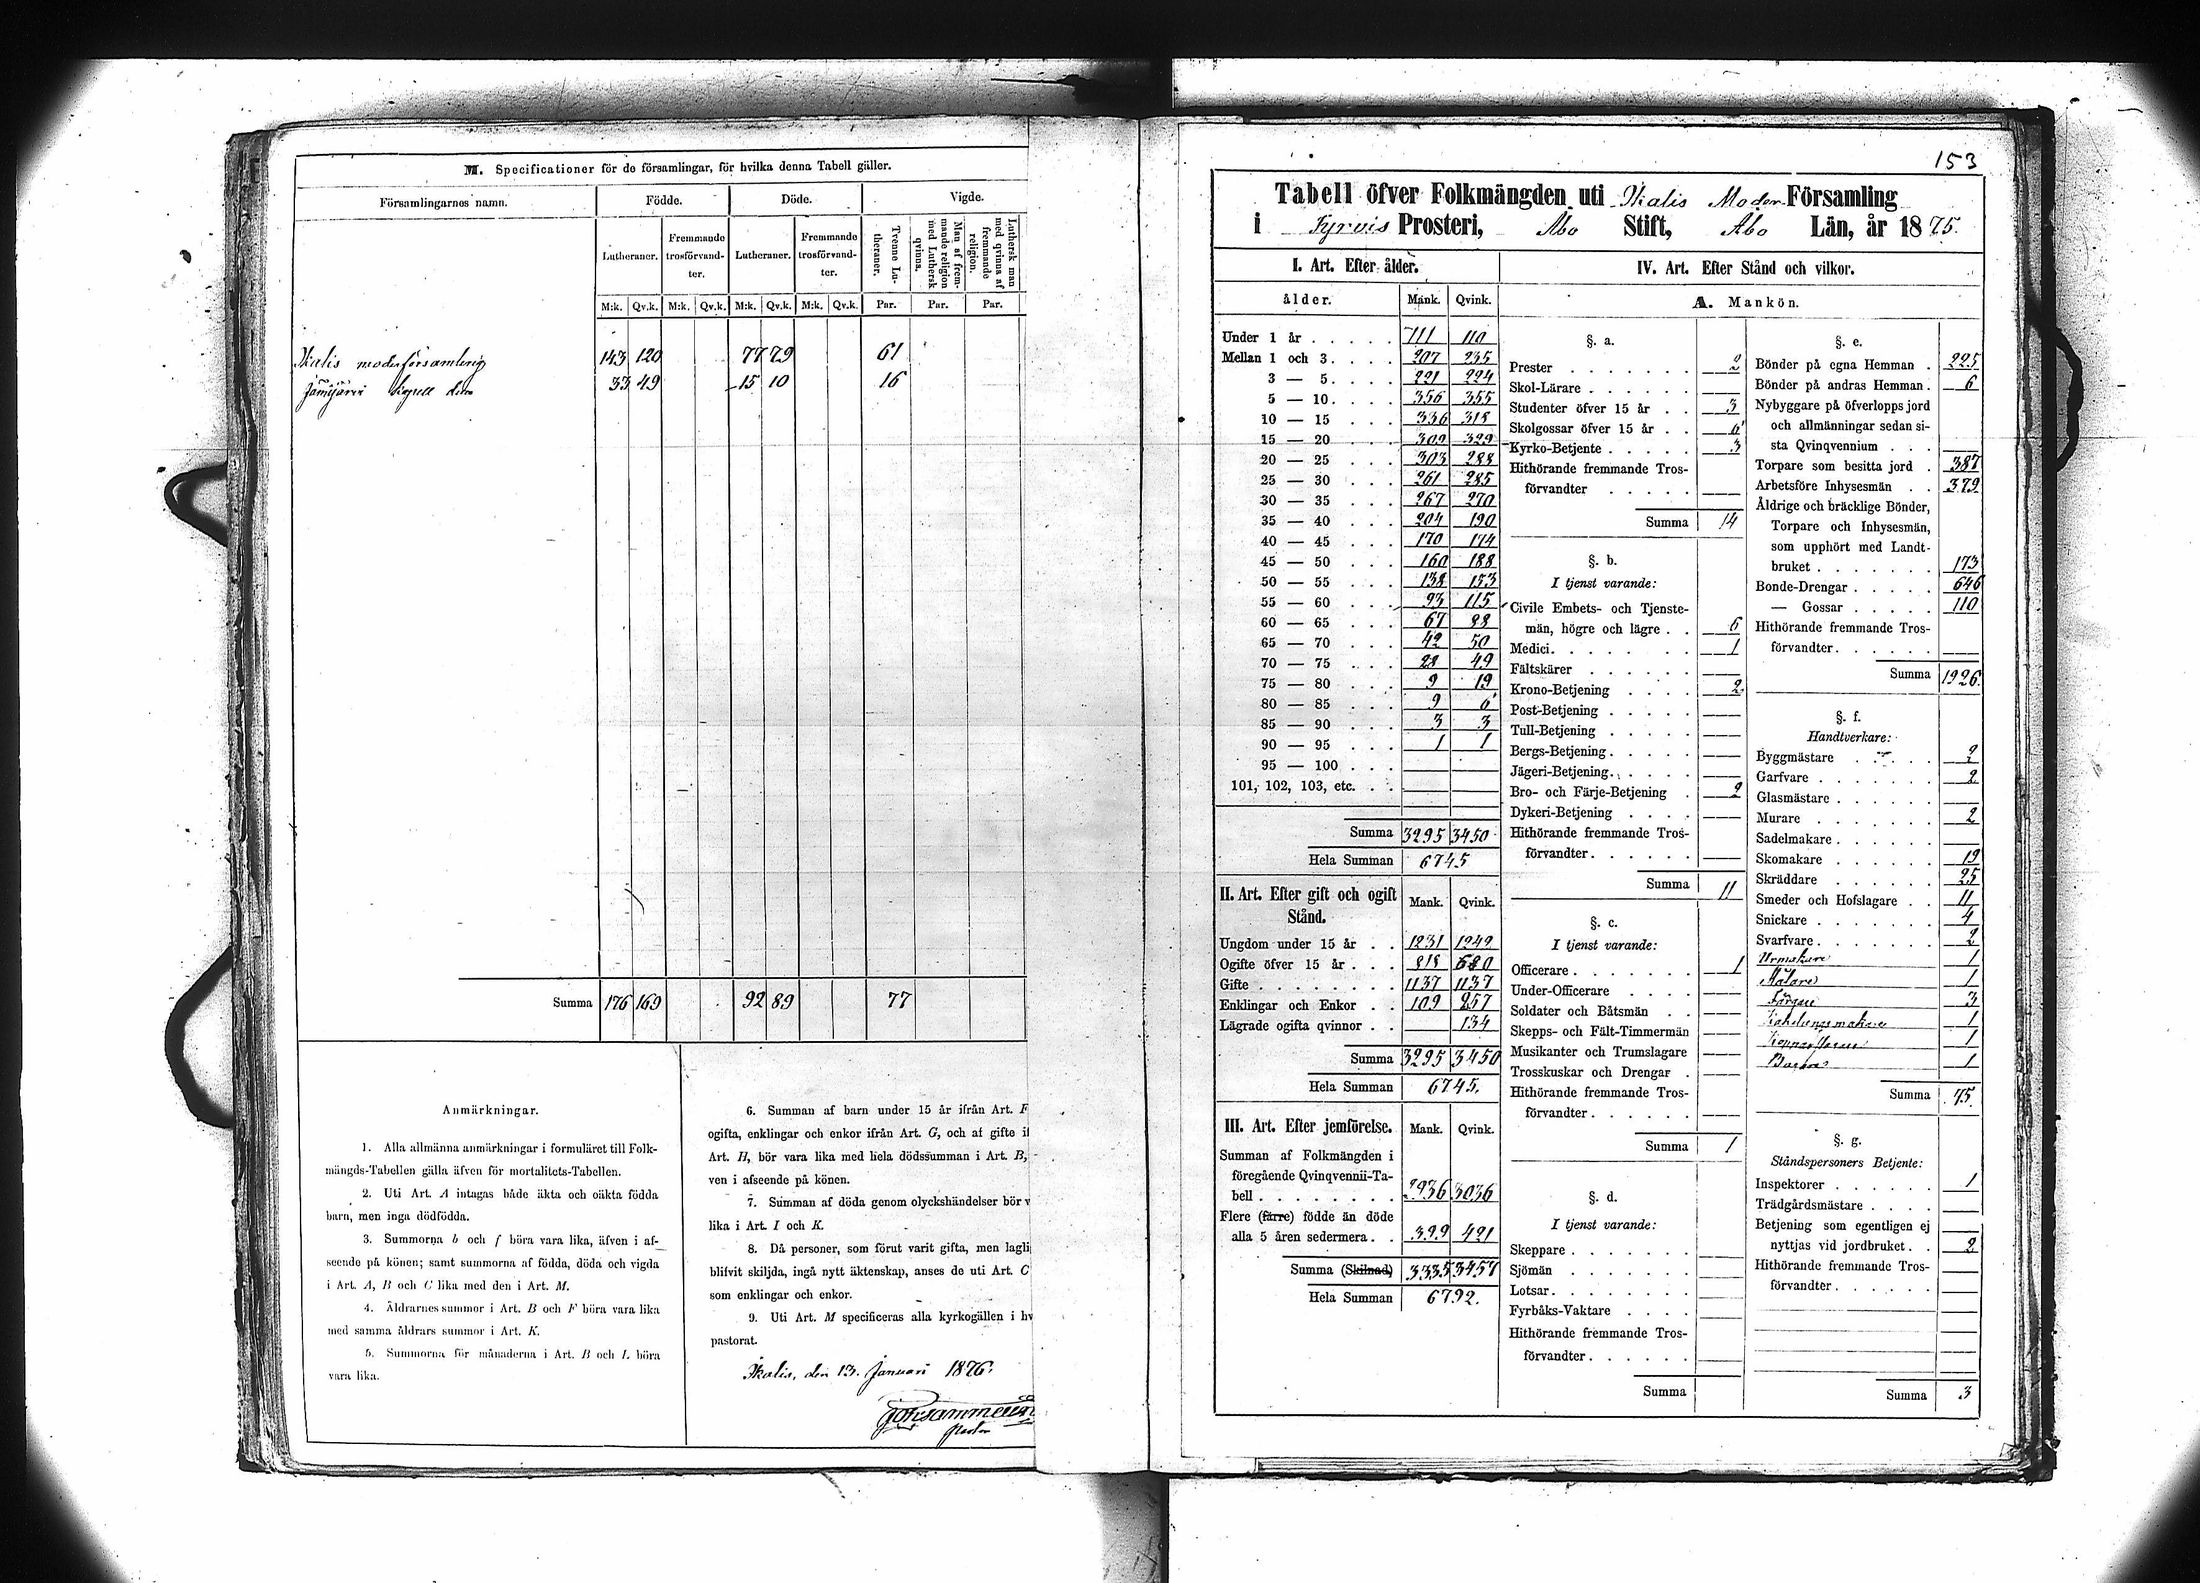 M. Specificationer för de församlingar, för hvilka denna Tabell gäller.
Församlingarnes namn. Födde. Döde. Vigde.
Lutheraner. Fremmande trosförvandter. Lutheraner. Fremmande trosförvandter. Tvenne Lutheraner. Man af fremmande religion med Luthersk qvinna. Luthersk man med qvinna af fremmande religion.
M:k. Qv.k. M:k. Qv.k. M:k. Qv.k. M:k. Qv.k. Par. Par. Par.
Ikalis moderförsamling 143 120 77 79 61
Jämijärvi kapell dito 33 49 15 10 16
Summa 176 169 92 89 77
Anmärkningar.
1. Alla allmänna anmärkningar i formuläret till Folk-
mängds-Tabellen gälla äfven för mortalitets-Tabellen.
2. Uti Art. A intagas både äkta och oäkta födda
barn, men inga dödfödda.
3. Summorna b och f böra vara lika, äfven i af-
seende på könen; samt summorna af födda, döda och vigda
i Art. A, B och C lika med den i Art. M.
4. Åldrarnes summor i Art. B och F böra vara lika
med samma åldrars summor i Art. K.
5. Summorna för månaderna i Art. B och L böra
vara lika.
6. Summan af barn under 15 år ifrån Art. F
ogifta, enklingar och enkor ifrån Art. G, och af gifte if
Art. H, bör vara lika med hela dödssumman i Art. B,
ven i afseende på könen.
7. Summan af döda genom olyckshändelser bör v
lika i Art. I och K.
8. Då personer, som förut varit gifta, men lagli
blifvit skiljda, ingå nytt äktenskap, anses de uti Art. C
som enklingar och enkor.
9. Uti Art. M specificeras alla kyrkogällen i hv
pastorat.
Ikalis, den 13. Januari 1876.
153
Tabell öfver Folkmängden uti Ikalis Moder Församling
i Tyrvis Prosteri, Åbo Stift, Åbo Län, år 1875.
I. Art. Efter ålder.
ålder. Mank. Qvink.
Under 1 år 111 110
Mellan 1 och 3 207 235
3 — 5 221 224
5 — 10 356 355
10 — 15 336 318
15 — 20 309 329
20 — 25 303 288
25 — 30 261 285
30 — 35 267 270
35 — 40 204 190
40 — 45 170 174
45 — 50 160 188
50 — 55 138 153
55 — 60 93 115
60 — 65 67 88
65 — 70 42 50
70 — 75 28 49
75 — 80 9 19
80 — 85 9 6
85 — 90 3 3
90 — 95 1 1
95 — 100
101, 102, 103, etc.
Summa 3295 3450
Hela Summan 6745
II. Art. Efter gift och ogift Stånd. Mank. Qvink.
Ungdom under 15 år 1231 1242
Ogifte öfver 15 år 818 680
Gifte 1137 1137
Enklingar och Enkor 109 257
Lägrade ogifta qvinnor 134
Summa 3295 3450
Hela Summan 6745.
III. Art. Efter jemförelse. Mank. Qvink.
Summan af Folkmängden i
föregående Qvinqvennii-Ta-
bell 2936 3036
Flere (färre) födde än döde
alla 5 åren sedermera 399 421
Summa (Skilnad) 3335 3457
Hela Summan 6792.
IV. Art. Efter Stånd och vilkor.
A. Mankön.
§. a.
Prester 2
Skol-Lärare
Studenter öfver 15 år 3
Skolgossar öfver 15 år 6
Kyrko-Betjente 3
Hithörande fremmande Tros-
förvandter
Summa 14
§. b.
I tjenst varande:
Civile Embets- och Tjenste-
män, högre och lägre 6
Medici 1
Fältskärer
Krono-Betjening 2
Post-Betjening
Tull-Betjening
Bergs-Betjening
Jägeri-Betjening
Bro- och Färje-Betjening 2
Dykeri-Betjening
Hithörande fremmande Tros-
förvandter
Summa 11
§. c.
I tjenst varande:
Officerare 1
Under-Officerare
Soldater och Båtsmän
Skepps- och Fält-Timmermän
Musikanter och Trumslagare
Trosskuskar och Drengar
Hithörande fremmande Tros-
förvandter
Summa 1
§. d.
I tjenst varande:
Skeppare
Sjömän
Lotsar
Fyrbåks-Vaktare
Hithörande fremmande Tros-
förvandter
Summa
§. e.
Bönder på egna Hemman 225
Bönder på andras Hemman 6
Nybyggare på öfverlopps jord
och allmänningar sedan si-
sta Qvinqvennium
Torpare som besitta jord 387
Arbetsföre Inhysesmän 379
Åldrige och bräcklige Bönder,
Torpare och Inhysesmän,
som upphört med Landt-
bruket 173
Bonde-Drengar 646
— Gossar 110
Hithörande fremmande Tros-
förvandter
Summa 1926.
§. f.
Handtverkare:
Byggmästare 2
Garfvare 2
Glasmästare
Murare 2
Sadelmakare
Skomakare 19
Skräddare 25
Smeder och Hofslagare 11
Snickare 4
Svarfvare 2
Urmakare 1
Målare 1
Färgare 3
Kakelugnsmakare 1
1
1
Summa 75.
§. g.
Ståndspersoners Betjente:
Inspektorer 1
Trädgårdsmästare
Betjening som egentligen ej
nyttjas vid jordbruket 2
Hithörande fremmande Tros-
förvandter
Summa 3